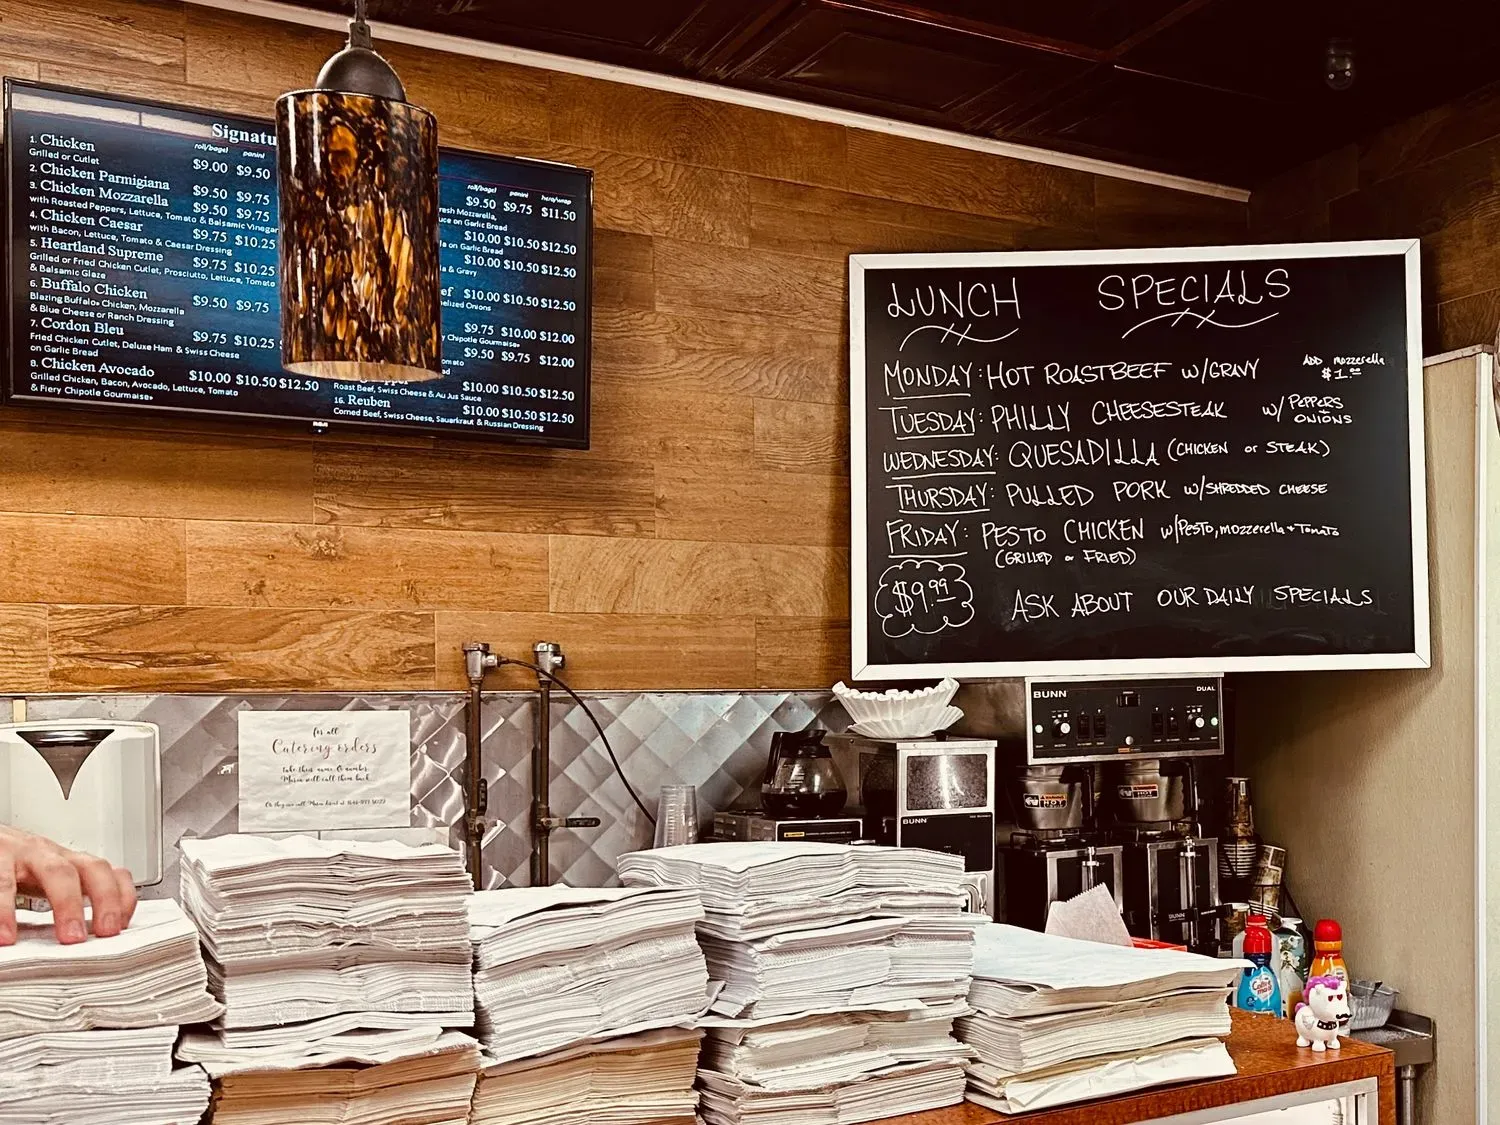 Signatu
roll/bagel panini
1. Chicken
Grilled or Cutlet
$9.00 $9.50
2. Chicken Parmigiana
$9.50 $9.75
3. Chicken Mozzarella
$9.50 $9.75
with Roasted Peppers, Lettuce, Tomato & Balsamic Vinegar
4. Chicken Caesar
$9.75 $10.25
with Bacon, Lettuce, Tomato & Caesar Dressing
5. Heartland Supreme
$9.75 $10.25
Grilled or Fried Chicken Cutlet, Prosciutto, Lettuce, Tomato
& Balsamic Glaze
6. Buffalo Chicken
$9.50 $9.75
Blazing Buffalo Chicken, Mozzarella
& Blue Cheese or Ranch Dressing
7. Cordon Bleu
$9.75 $10.25
Fried Chicken Cutlet, Deluxe Ham & Swiss Cheese
on Garlic Bread
8. Chicken Avocado
$10.00 $10.50 $12.50
Grilled Chicken, Bacon, Avocado, Lettuce, Tomato
& Fiery Chipotle Gourmaise
roll/bagel panini hero/wrap
$9.50 $9.75 $11.50
resh Mozzarella,
uce on Garlic Bread
$10.00 $10.50 $12.50
a on Garlic Bread
$10.00 $10.50 $12.50
a & Gravy
ef $10.00 $10.50 $12.50
elized Onions
$9.75 $10.00 $12.00
y Chipotle Gourmaise
$9.50 $9.75 $12.00
omato
$10.00 $10.50 $12.50
Roast Beef, Swiss Cheese & Au Jus Sauce
16. Reuben
$10.00 $10.50 $12.50
Corned Beef, Swiss Cheese, Sauerkraut & Russian Dressing
RCA
LUNCH SPECIALS
MONDAY: HOT ROASTBEEF W/GRAVY ADD mozzerella $1.00
TUESDAY: PHILLY CHEESESTEAK W/ PEPPERS + ONIONS
WEDNESDAY: QUESADILLA (CHICKEN or STEAK)
THURSDAY: PULLED PORK W/SHREDDED CHEESE
FRIDAY: PESTO CHICKEN W/Pesto, mozzerella + Tomato
(GRILLED or FRIED)
$9.99 ASK ABOUT OUR DAILY SPECIALS
for all
Catering orders
take their name & number
Maria will call them back
BUNN DUAL
BUNN
HOT
HOT
BUNN
Coffee mate